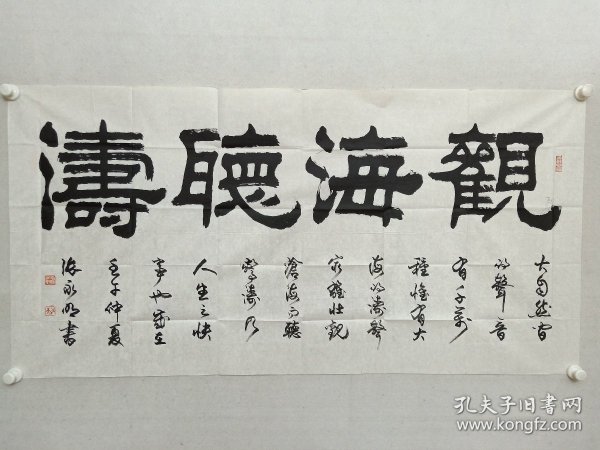 觀海聽濤
大自然間
的聲音
有千萬
種惟有大
海的濤聲
最雄壯觀
滄海而聽
驚濤乃
人生之快
事也歲在
壬午仲夏
張永明書
孔夫子旧书网
www.kongfz.com